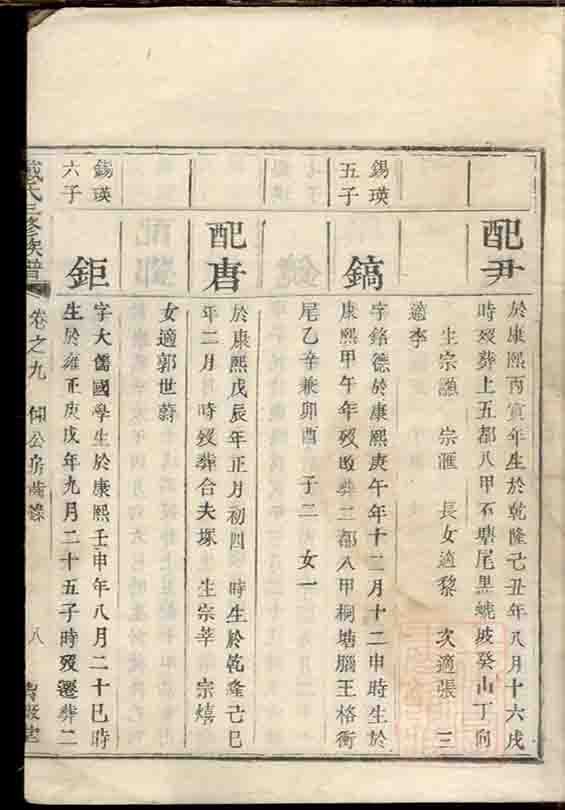 配尹
於康熙丙寅年生於乾隆己丑年八月十六戌
時歿葬上五都八甲石塘尾黑虢坡癸山丁向
生宗謙 宗滙 長女適黎 次適張 三
適李
錫瑛
五子
鎬
字銘德於康熙庚午年十二月十二申時生於
康熙甲午年歿改葬二都八甲桐塘腦王格衝
尾乙辛兼卯酉 子二 女一
配唐
於康熙戊辰年正月初四 時生於乾隆己巳
年二月 時歿葬合夫塚 生宗莘 宗熺
女適郭世蔚
錫瑛
六子
鉅
字大儒國學生於康熙壬申年八月二十巳時
生於雍正庚戌年九月二十五子時歿遷葬二
戴氏三修族譜 卷之九 仰公房齒錄 八